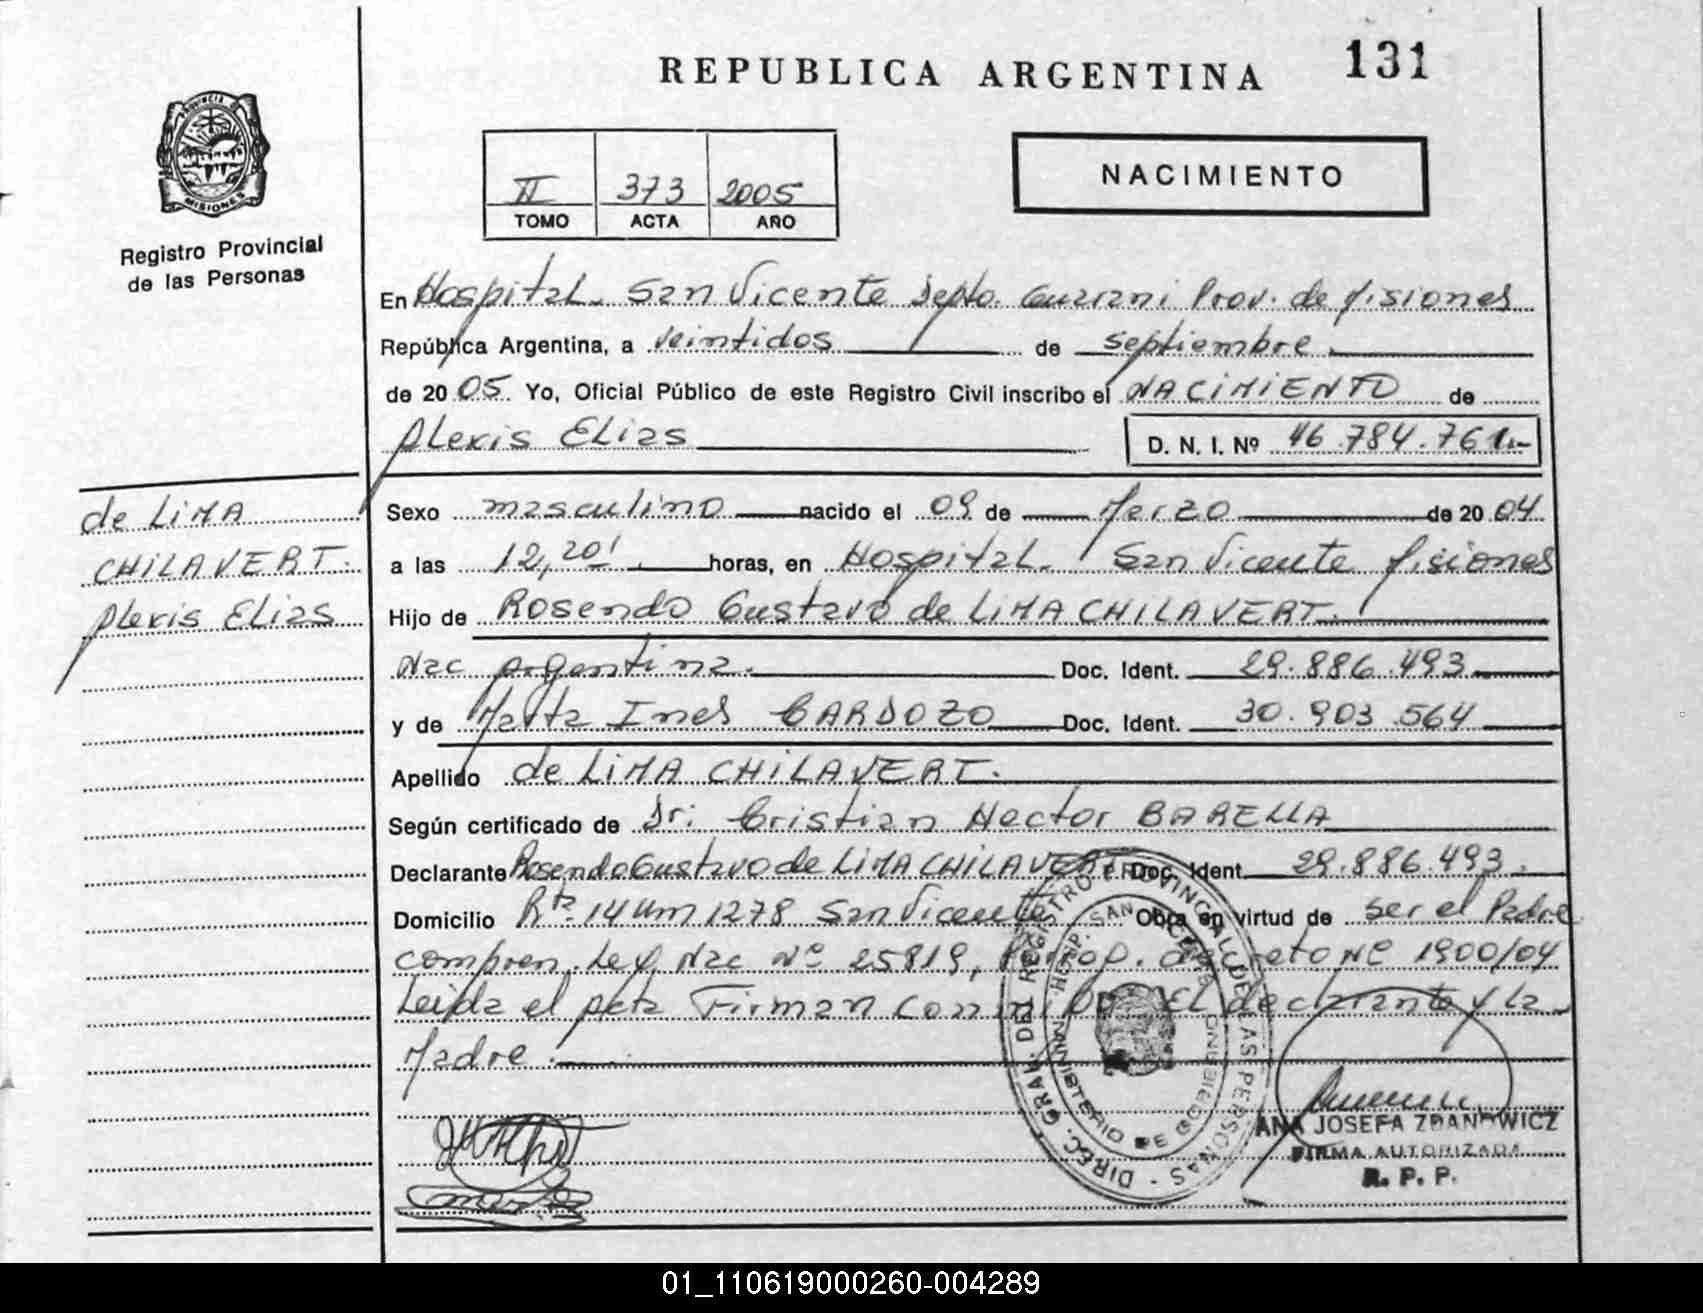 REPUBLICA ARGENTINA 131
PROVINCIA DE
MISIONES
Registro Provincial
de las Personas
II 373 2005
TOMO ACTA AÑO
NACIMIENTO
En Hospital San Vicente Depto. Guarani Prov. de Misiones
República Argentina, a veintidos de septiembre
de 2005. Yo, Oficial Público de este Registro Civil inscribo el NACIMIENTO de
Alexis Elias D. N. I. Nº 46.784.761.-
de LIMA
CHILAVERT.
Alexis Elias
Sexo masculino nacido el 09 de Marzo de 2004
a las 12,20' horas, en Hospital San Vicente Misiones
Hijo de Rosendo Gustavo de LIMA CHILAVERT.
Nac Argentina. Doc. Ident. 29.886.493
y de Marta Ines CARDOZO Doc. Ident. 30.903.564
Apellido de LIMA CHILAVERT.
Según certificado de Dr: Cristian Hector BARELLA
Declarante Rosendo Gustavo de LIMA CHILAVERT Doc. Ident. 29.886.493.
Domicilio Rta. 14 Km 1278 San Vicente Obra en virtud de ser el Padre
compren. Ley Nac Nº 25819, decreto Nº 1900/04
Leida el Acta Firman El declarante y La
Madre.
DIREC. GRAL. DEL REGISTRO PROVINCIAL DE LAS PERSONAS
HOSP. SAN VICENTE
MINISTERIO DE GOBIERNO
ANA JOSEFA ZDANOWICZ
FIRMA AUTORIZADA
R. P. P.
01_110619000260-004289